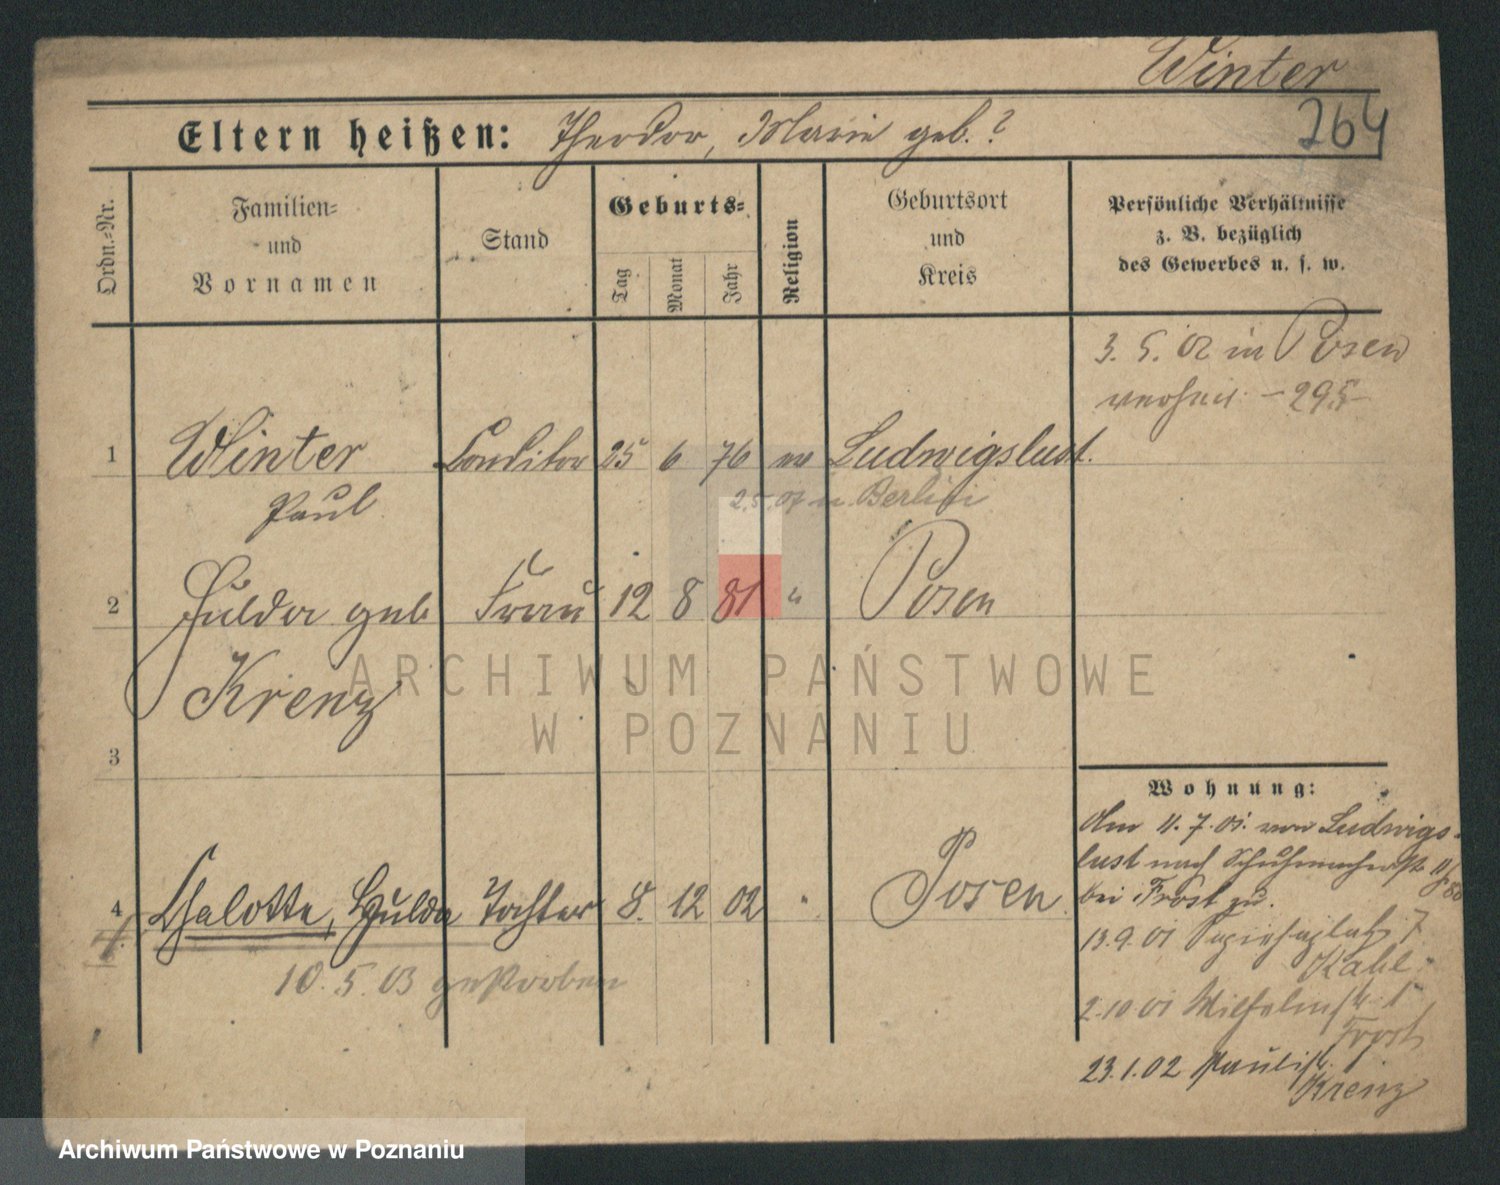 Winter
264
Eltern heißen: Theodor, Marie geb. ?
Ordn.-Nr.
Familien-
und
Vornamen
Stand
Geburts-
Tag
Monat
Jahr
Religion
Geburtsort
und
Kreis
Persönliche Verhältnisse
z. B. bezüglich
des Gewerbes u. s. w.
3. 5. 02 in Posen
verheir. - 295-
1 Winter Conditor 25 6 76 ev Ludwigslust.
Paul 2.5.07 n. Berlin
2 Hulda geb Frau 12 8 81 " Posen
Krenz
3
4 Chalotte, Hulda Tochter 8. 12 02 " Posen
10. 5. 03 gestorben
Wohnung:
Am 11. 7. 01. von Ludwigs-
lust nach Schuhmacherstr 11/
bei Frost zu.
13.9.01 Sapiehaplatz 7
Kahl
2.10.01 Wilhelmstr. 1
Frost
23.1.02 Paulistr. 1
Krenz
ARCHIWUM PAŃSTWOWE
W POZNANIU
Archiwum Państwowe w Poznaniu